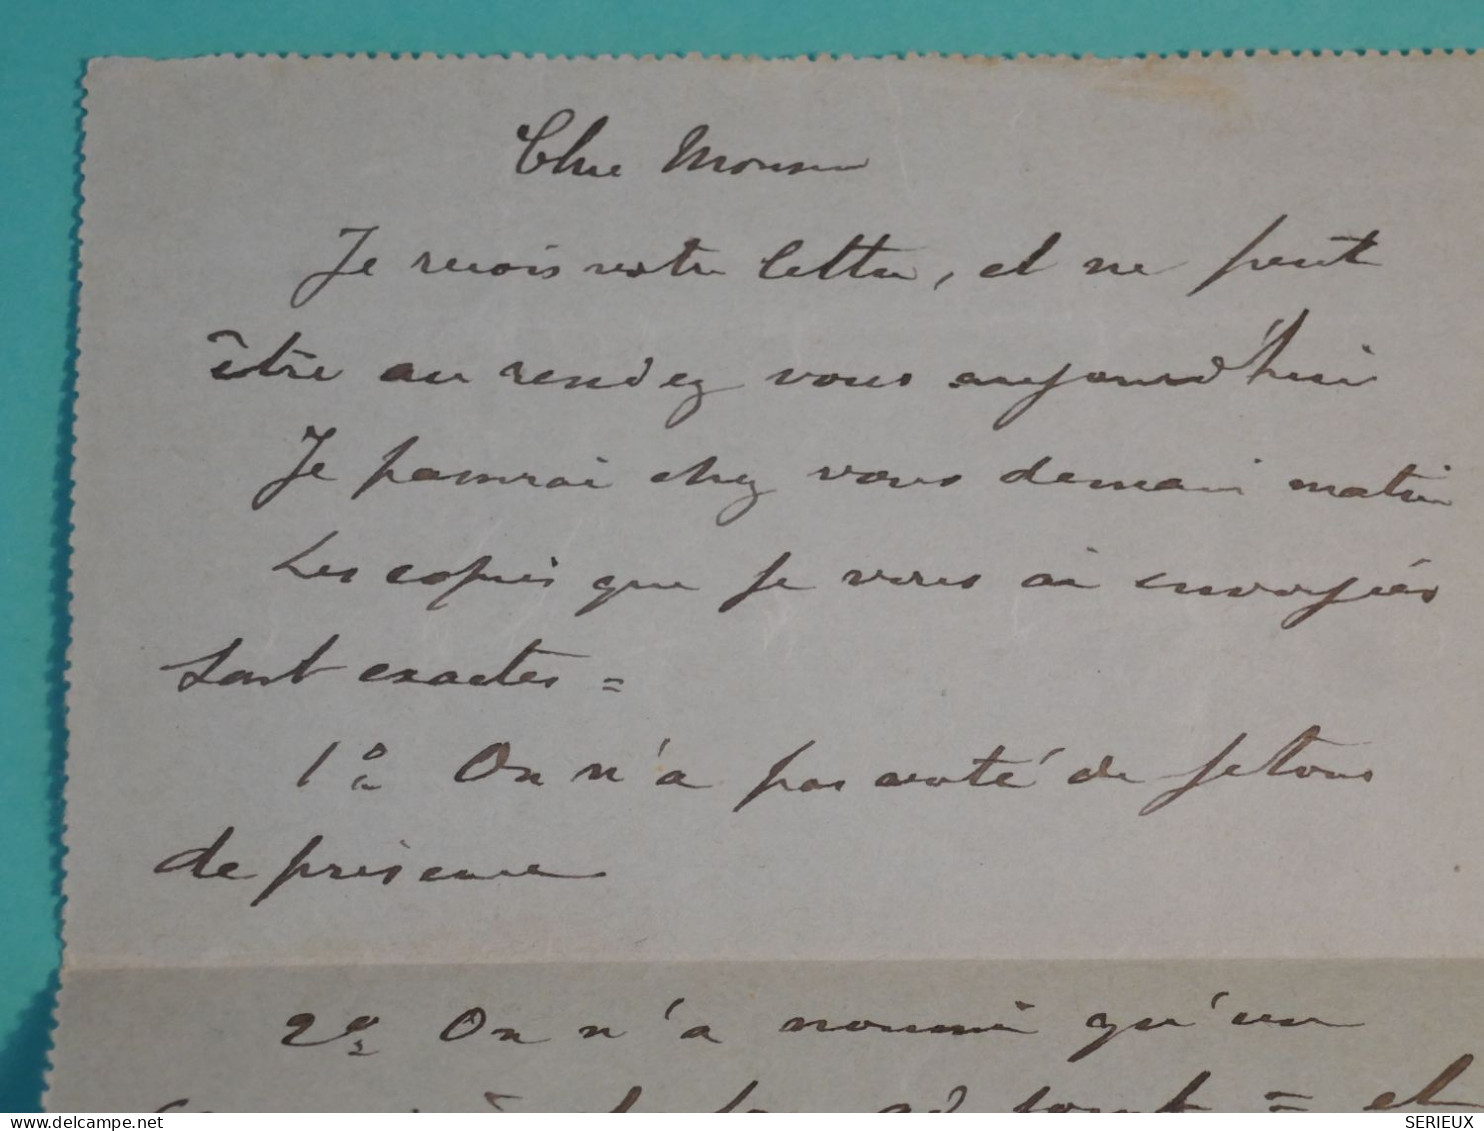 Cher Monsieur
Je reçois votre lettre, et ne peut
être au rendez vous aujourd'hui
Je passerai chez vous demain matin
Les copies que je vous ai envoyées
sont exactes =
1º On n'a pas voté de jetons
de présence
2º On n'a nommé qu'un
= et
delcampe.net
SERIEUX